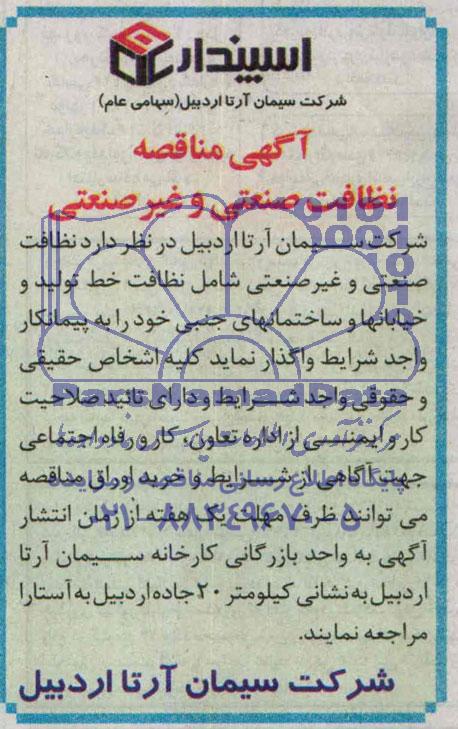 اسپندار
شرکت سیمان آرتا اردبیل(سهامی عام)
آگهی مناقصه
نظافت صنعتی و غیر صنعتی
شرکت سیمان آرتا اردبیل در نظر دارد نظافت
صنعتی و غیر صنعتی شامل نظافت خط تولید و
خیابانها و ساختمانهای جنبی خود را به پیمانکار
واجد شرایط واگذار نماید کلیه اشخاص حقیقی
و حقوقی واجد شرایط و دارای تائید صلاحیت
کار و ایمنی از اداره تعاون، کار و رفاه اجتماعی
جهت آگاهی از شرایط و خرید اوراق مناقصه
می توانند ظرف مهلت یک هفته از زمان انتشار
آگهی به واحد بازرگانی کارخانه سیمان آرتا
اردبیل به نشانی کیلومتر ۲۰ جاده اردبیل به آستارا
مراجعه نمایند.
شرکت سیمان آرتا اردبیل
ParsNamadData
پایگاه اطلاع رسانی مناقصه و مزایده
۰۲۱-۸۸۳۴۹۶۷۰-۵